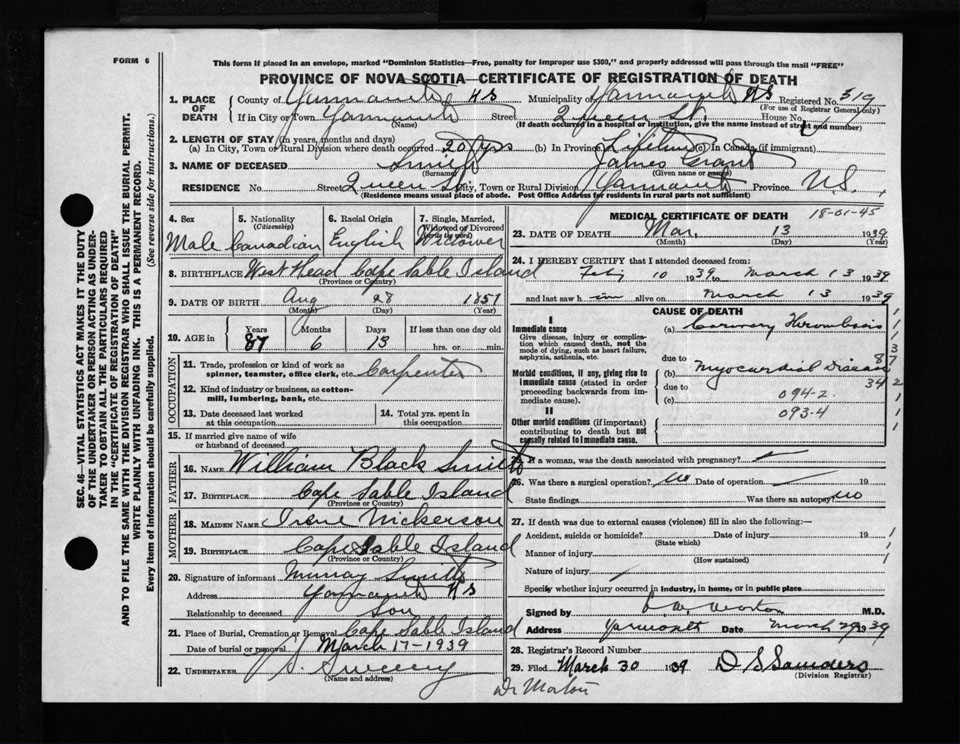 FORM 6
This form if placed in an envelope, marked "Dominion Statistics—Free, penalty for improper use $300," and properly addressed will pass through the mail "FREE"
PROVINCE OF NOVA SCOTIA—CERTIFICATE OF REGISTRATION OF DEATH
SEC. 46—VITAL STATISTICS ACT MAKES IT THE DUTY
OF THE UNDERTAKER OR PERSON ACTING AS UNDER-
TAKER TO OBTAIN ALL THE PARTICULARS REQUIRED
IN THE "CERTIFICATE OF REGISTRATION OF DEATH"
AND TO FILE THE SAME WITH THE DIVISION REGISTRAR WHO SHALL ISSUE THE BURIAL PERMIT.
WRITE PLAINLY WITH UNFADING INK. THIS IS A PERMANENT RECORD.
Every item of information should be carefully supplied. (See reverse side for instructions.)
1. PLACE OF DEATH
County of Yarmouth NS Municipality of Yarmouth NS Registered No. 319
(For use of Registrar General only)
If in City or Town Yarmouth Street Queen St. House No.
(Name) (If death occurred in a hospital or institution, give the name instead of street and number)
2. LENGTH OF STAY (in years, months and days)
(a) In City, Town or Rural Division where death occurred 20 yrs (b) In Province Lifetime (c) In Canada (if immigrant)
3. NAME OF DECEASED Smith James Grant
(Surname) (Given name or names)
RESIDENCE No. Street Queen St City, Town or Rural Division Yarmouth Province N.S.
(Residence means usual place of abode. Post Office Address for residents in rural parts not sufficient)
4. Sex 5. Nationality 6. Racial Origin 7. Single, Married,
(Citizenship) Widowed or Divorced
(write the word)
Male Canadian English Widower
8. BIRTHPLACE West Head Cape Sable Island
(Province or Country)
9. DATE OF BIRTH Aug 28 1851
(Month) (Day) (Year)
10. AGE in Years Months Days If less than one day old
87 6 13 hrs. or min.
OCCUPATION
11. Trade, profession or kind of work as
spinner, teamster, office clerk, etc. Carpenter
12. Kind of industry or business, as cotton-
mill, lumbering, bank, etc.
13. Date deceased last worked
at this occupation
14. Total yrs. spent in
this occupation
15. If married give name of wife
or husband of deceased
FATHER
16. NAME William Black Smith
17. BIRTHPLACE Cape Sable Island
(Province or Country)
MOTHER
18. MAIDEN NAME Irene Nickerson
19. BIRTHPLACE Cape Sable Island
(Province or Country)
20. Signature of informant Murray Smith
Address Yarmouth NS
Relationship to deceased Son
21. Place of Burial, Cremation or Removal Cape Sable Island
Date of burial or removal March 17-1939
22. UNDERTAKER Sweeny
(Name and address)
MEDICAL CERTIFICATE OF DEATH 18-01-45
23. DATE OF DEATH Mar. 13 1939
(Month) (Day) (Year)
24. I HEREBY CERTIFY that I attended deceased from:
Feby 10 1939 to March 13 1939
and last saw him alive on March 13 1939
CAUSE OF DEATH
I
Immediate cause (a) Coronary Thrombosis
Give disease, injury or complica-
tion which caused death, not the
mode of dying, such as heart failure,
asphyxia, asthenia, etc.
due to
Morbid conditions, if any, giving rise to (b) Myocardial Disease 87
immediate cause (stated in order due to 34
proceeding backwards from im- (c) 094-2
mediate cause).
II 093-4
Other morbid conditions (if important)
contributing to death but not
causally related to immediate cause.
25. If a woman, was the death associated with pregnancy?
26. Was there a surgical operation? No Date of operation 19
State findings Was there an autopsy? No
27. If death was due to external causes (violence) fill in also the following:—
Accident, suicide or homicide? Date of injury 19
(State which)
Manner of injury
(How sustained)
Nature of injury
Specify whether injury occurred in industry, in home, or in public place
Signed by Morton M.D.
Address Yarmouth Date March 29 1939
28. Registrar's Record Number
29. Filed March 30 1939 D S Saunders
(Division Registrar)
Dr Morton